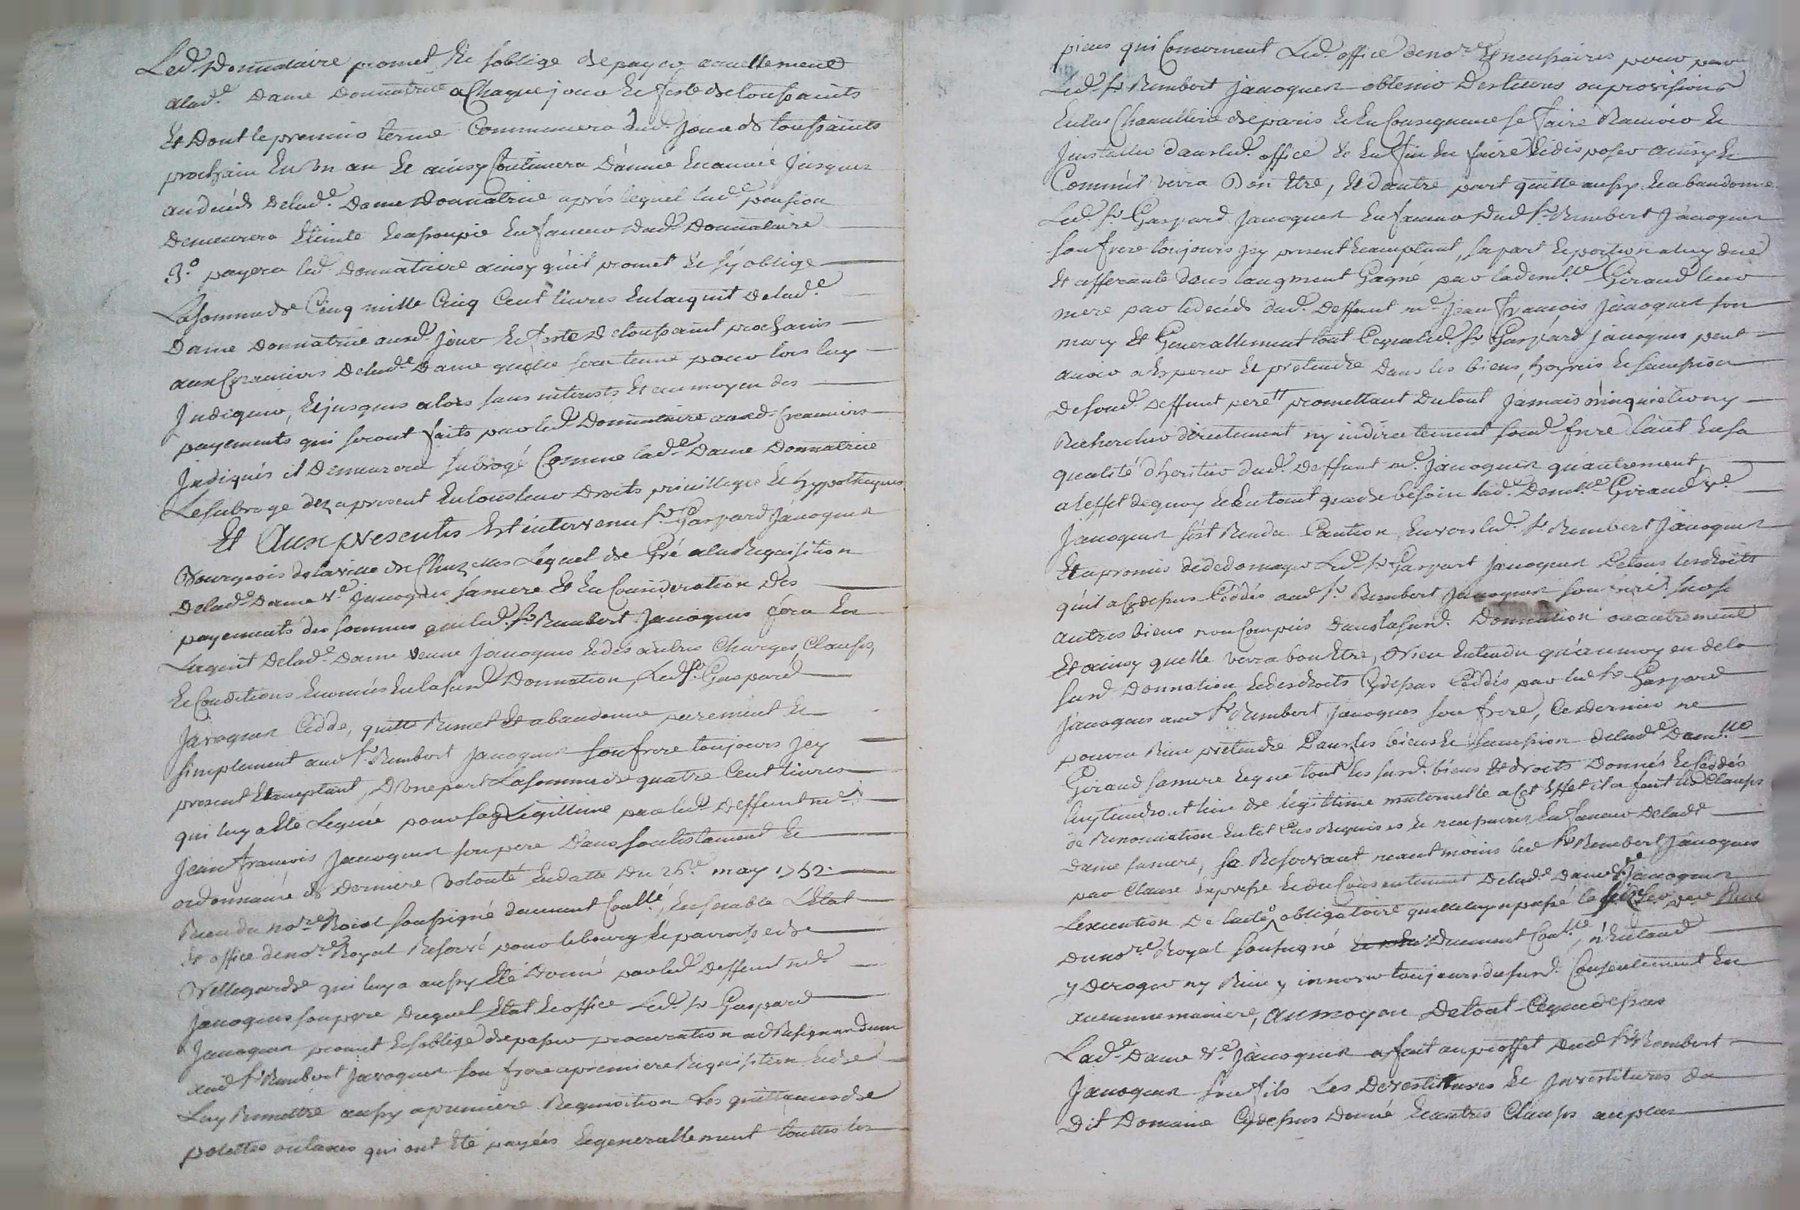 Led. Donnataire promet Et soblige de payer annuellement
a lad.e Dame Donnatrice a Chaque jour Et feste de toussaints
Et Dont le premier terme Commencera aud. Jour de toussaints
prochain En un an Et ainsy Continuera D'année En année Jusques
au décés de lad.e Dame Donnatrice après lequel lad.e pension
Demeurera Eteinte Et assoupie En faveur dud. Donnataire
3.o payera led. Donnataire ainsy qu'il promet Et s'y oblige
La somme de Cinq mille Cinq Cent livres En lacquit de lad.e
Dame Donnatrice aud. Jour Et feste de toussaint prochains
aux Creanciers de lad.e Dame qu'elle sera tenue pour lors luy
Indiquer, Et jusques alors sans interests Et au moyen des
payements qui seront faits par led. Donnataire auxd. Creanciers
Indiqués il Demeurera subrogé Comme lad.e Dame Donnatrice
Le subroge dez a present En tous leur Droits privilleges Et hypotheques
Et Aux presentes Est intervenu S.r Gaspard Jacoques
Bourgeois de la ville de Lequel de Gré a la Requisition
de lad.e Dame V.e Jacoques sa mere Et En Consideration des
payements des sommes que led. S.r Rambert Jacoques fera En
Lacquit de lad.e Dame veuve Jacoques Et des autres Charges Clauses,
Et Conditions Enoncés En la susd. Donnation, Led. S.r Gaspard
Jacoques Cedde, quitte Remet Et abandonne purement Et
simplement aud. S.r Rambert Jacoques son frere toujours Jcy
present Et acceptant, D'une part La somme de quatre Cent livres
qui luy a Eté Leguée pour sa Légittime par led. Deffunt m.e
Jean françois Jacoques son pere Dans son testament Et
ordonnance de Derniere volonté En datte du 26.e may 1752.
Receu du no.re Roial soussigné duement Conllé, Ensemble L'état
Et office de no.re Royal Reservé pour le bourg Et parroisse de
Bellegarde qui luy a aussy Eté Donné par led. Deffunt m.e
Jacoques son pere Duquel Etat Et office Led. S.r Gaspard
Jacoques promet Et soblige de passer procuration ad Resignandum
aud. S.r Rambert Jacoques son frere a premiere Requisition Et de
Luy Remettre aussy a premiere Requisition Les quittances de
polettes ou taxes qui ont Eté payées Et generallement touttes les
pieces qui Concernent Led. office de no.re Et necessaires pour
Led. S.r Rambert Jacoques obtenir Des lettres ou provisions
En la Chancellerie de paris Et En Consequence se faire Recevoir Et
Installer dans led. office Et Enfin En faire Et disposer ainsy Et
Comme il verra Bon Etre, Et d'autre part quitte aussy Et abandonne
Led. S.r Gaspard Jacoques En faveur dud. S.r Rambert Jacoques
son frere toujours Jcy present Et acceptant, sa part Et portion a luy due
Et afferante dans laugment Gagné par lad. dem.lle Giraud leur
mere par le décés dud. Deffunt m.e Jean François Jacoques son
mary Et Generallement tout Ce que led. S.r Gaspard Jacoques peut
avoir a Esperer Et pretendre Dans les biens, hoyries Et succession
de son d. Deffunt pere promettant Du tout Jamais n'inquietter ny
Rechercher directement ny indirectement sond. frere tant En sa
qualité d'heritier dud. Deffunt m.e Jacoques qu'autrement,
a leffet de quoy Et En tant que de besoin lad. Dem.lle Giraud V.e
Jacoques s'est Rendue Caution Envers led. S.r Rambert Jacoques
Et a promis de dedomager Led. S.r Gaspart Jacoques De tous les droits
qu'il a Cy dessus Ceddés aud. S.r Rambert Jacoques son frere, sur ses
autres biens non Compris dans la susd. Donnation ou autrement
Et ainsy quelle verra bon Etre, Bien Entendu qu'au moyen de la
susd. Donnation Et des droits Cy dessus Ceddés par led. S.r Gaspard
Jacoques aud. S.r Rambert Jacoques son frere, Ce dernier ne
pourra Rien pretendre Dans les biens Et succession de lad.e Dam.lle
Giraud sa mere Et que tous les susd. biens Et droits Donnés Et Ceddés
luy tiendront lieu de legittime maternelle a Cet Effet il a fait les Clauses
de Renonciation En tel Cas Requises Et necessaires En faveur de lad.e
Dame sa mere, se Reservant neantmoins led. S.r Rambert Jacoques
par Clause expresse Et du Consentement de lad.e Dame V.e Jacoques
L'execution De lacte obligatoire quelle luy a passé le Receu
du no.re Royal soussigné Duement Con.llé, n'Entend
y deroger ny Rien y innover toujours du susd. Consentement En
aucunne maniere, Au moyen De tout Ce que dessus
Lad.e Dame V.e Jacoques a fait au proffit dud. S.r Rambert
Jacoques son fils Les Devestitures Et Investitures du
dit Domaine Cy dessus Donné Et autres Clauses au plus